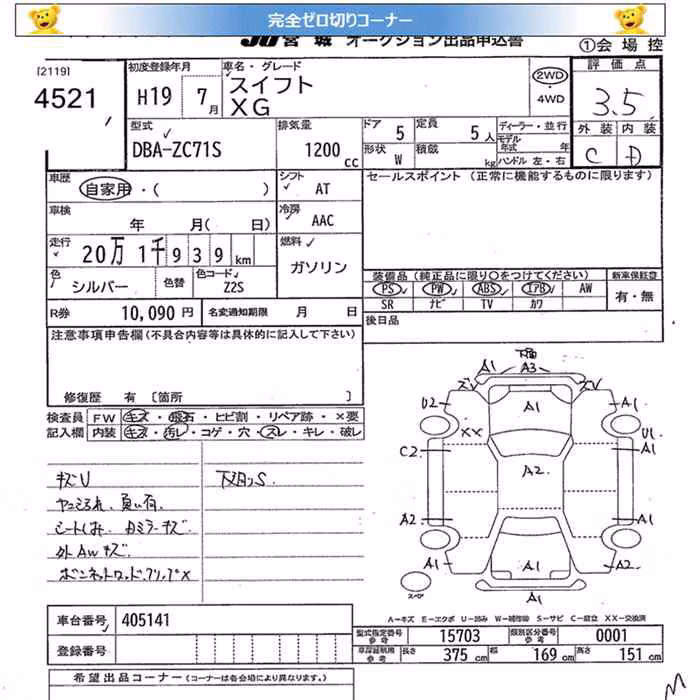 完全ゼロ切りコーナー
JU宮城 オークション出品申込書
①会場控
[2119]
4521
初度登録年月
H19 7月
車名・グレード
スイフト
XG
2WD・4WD
評価点
3.5
外装 内装
C D
型式
DBA-ZC71S
排気量
1200cc
ドア 5
形状 W
定員 5人
積載 kg
ディーラー・並行
モデル年式 年
ハンドル 左・右
車歴
自家用・( )
シフト
AT
セールスポイント (正常に機能するものに限ります)
車検
年 月( 日)
冷房
AAC
走行
20万1千939km
燃料
ガソリン
色
シルバー
色替
色コード
Z2S
装備品(純正品に限り○をつけてください)
PS PW ABS エアB AW
SR ナビ TV カワ
新車保証書
有・無
R券 10,090円
名変通知期限 月 日
後日品
注意事項申告欄(不具合内容等は具体的に記入して下さい)
修復歴 有 [箇所 ]
検査員記入欄
FW キズ・飛石・ヒビ割・リペア跡・×要
内装 キズ・汚レ・コゲ・穴・スレ・キレ・破レ
キズU
下廻りS
シートしみ
外AWキズ
ボンネットロッドクリップ×
下面
A1 A3 A1
ズV ズV
U2 A1 A1
XX U1
C2 A1
A2
A2 A1
A1 A1 A2
A1
スペア
A-キズ E-エクボ U-凹み W-補修跡 S-サビ C-腐立 XX-交換済
車台番号 405141
登録番号
型式指定番号 参考 15703
類別区分番号 参考 0001
車庫証明用 参考 長さ 375cm 幅 169cm 高さ 151cm
希望出品コーナー(コーナーは各会場により異なります。)